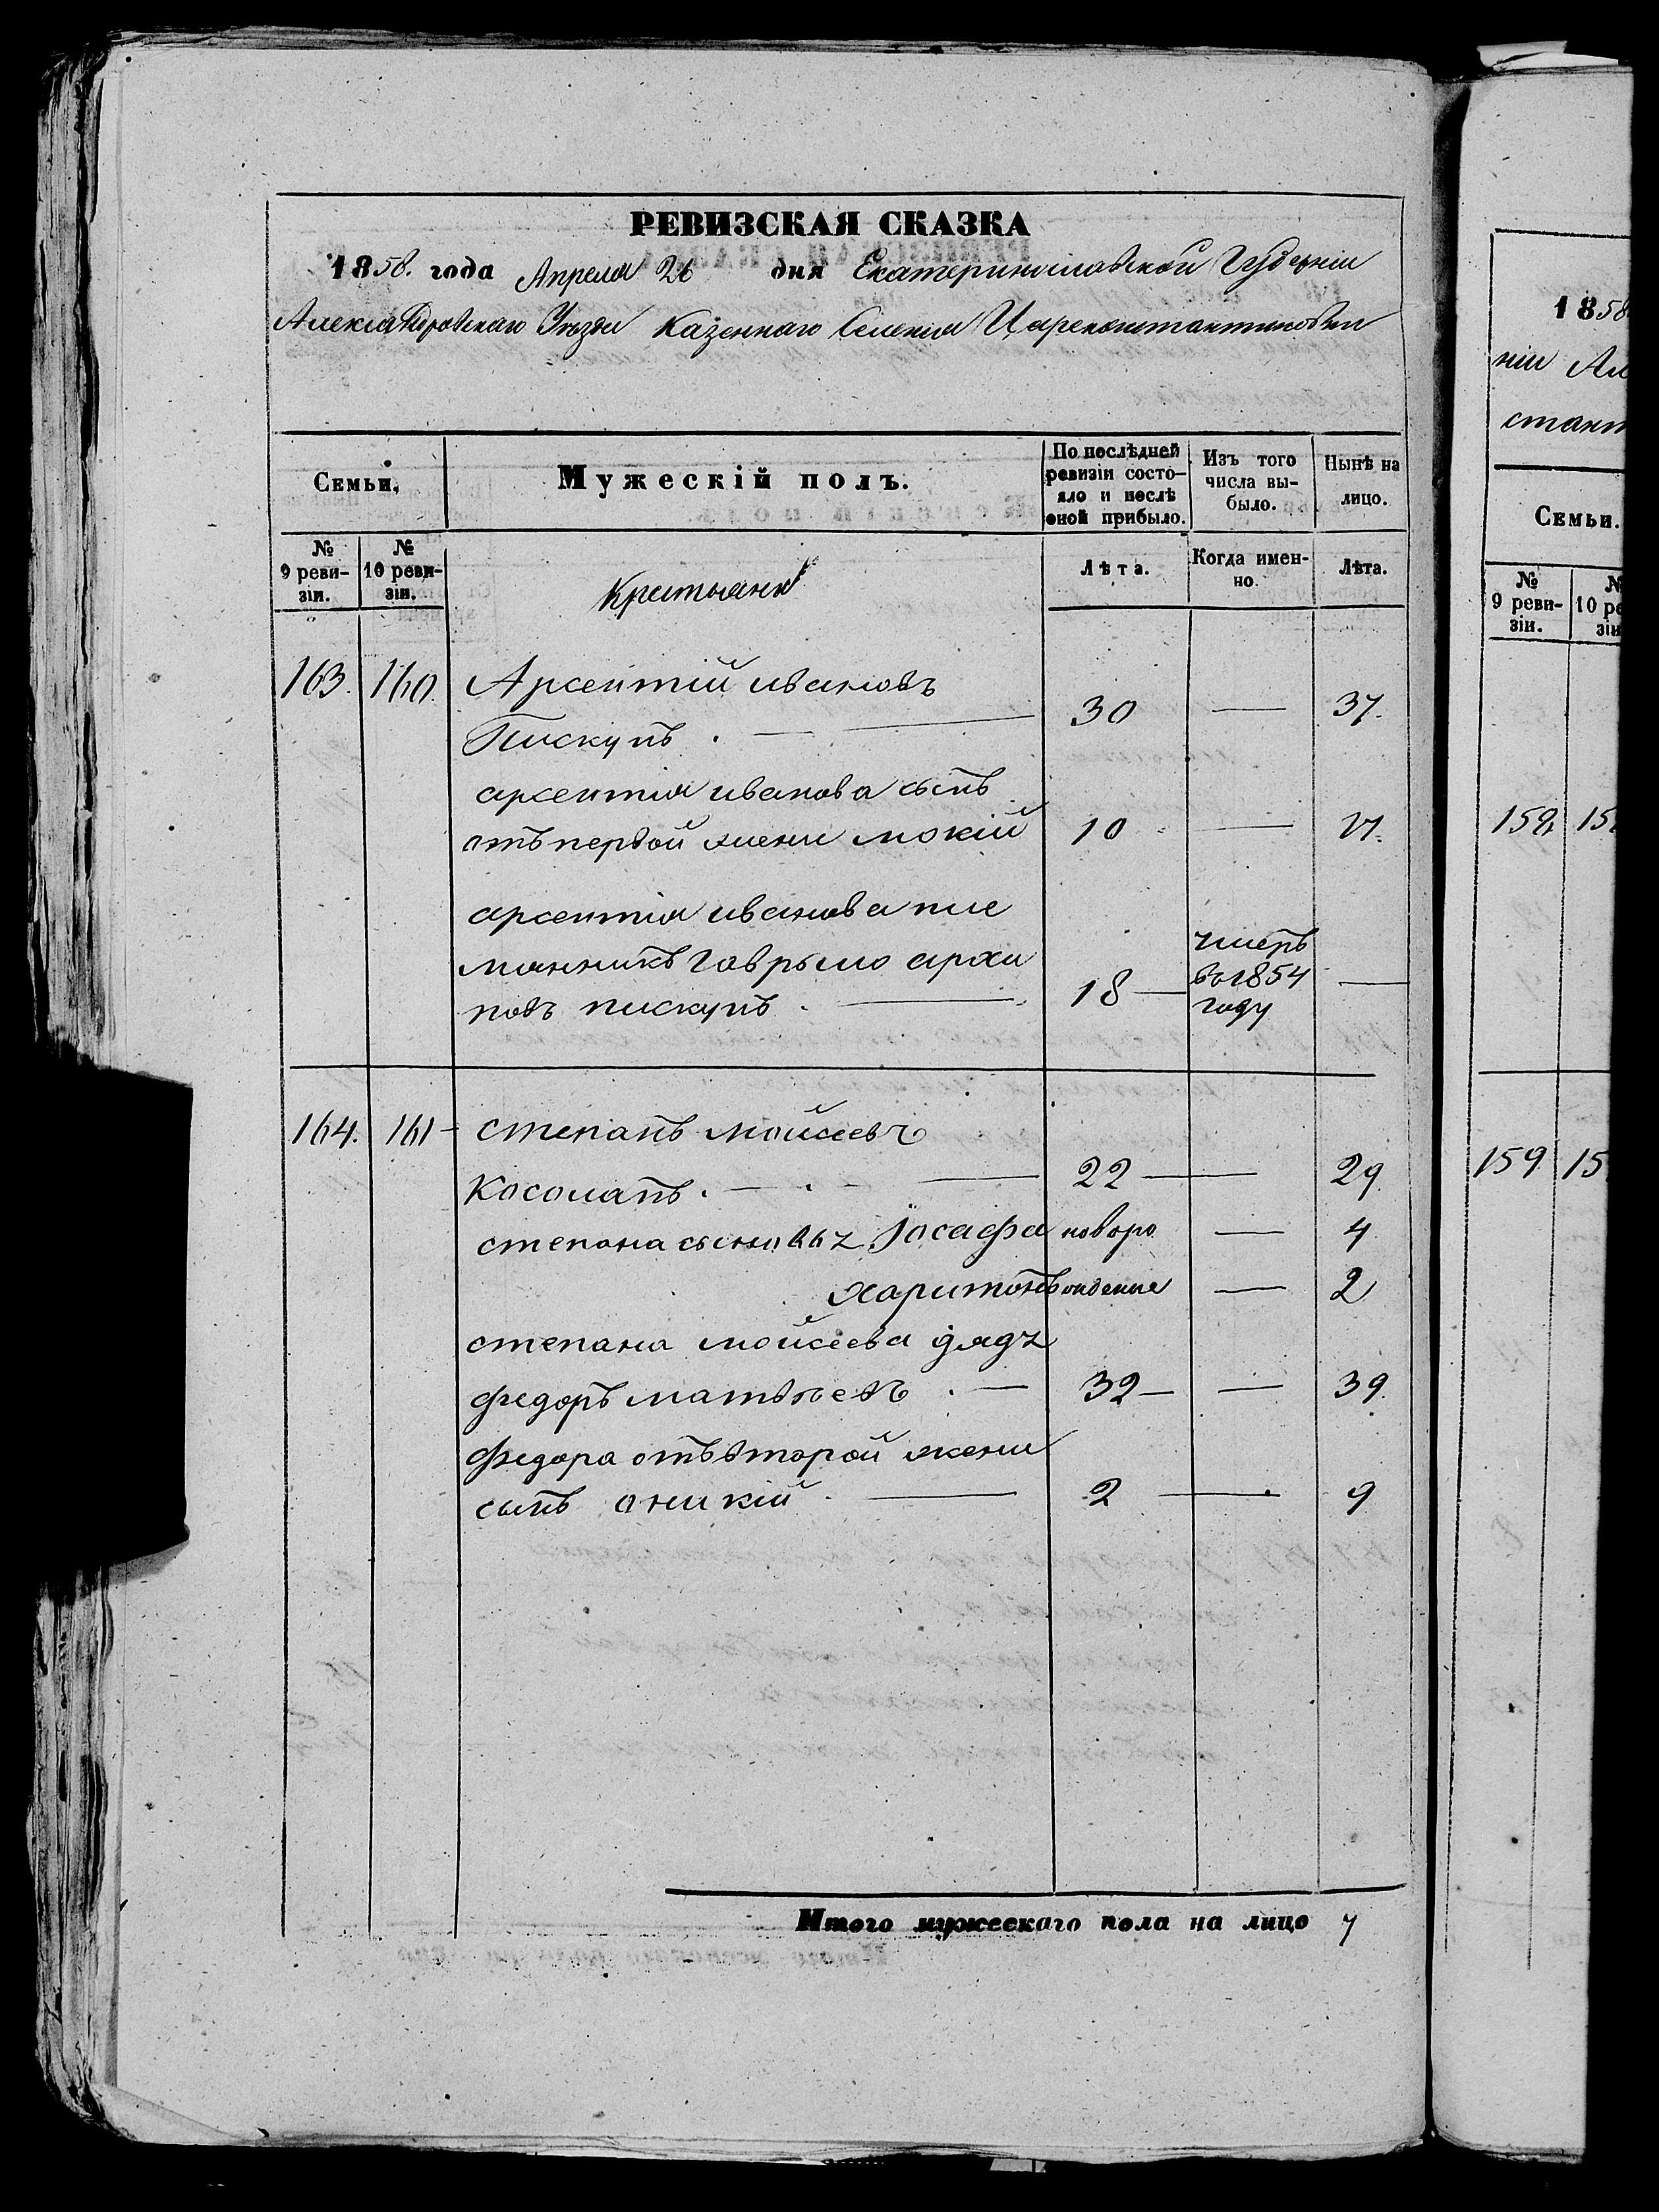 РЕВИЗСКАЯ СКАЗКА
1858. года Апреля 26 дня Екатеринославской Губерніи
Александровскаго Уезда Казеннаго Селенія Цареконстантиновки
Семьи,
Мужескій полъ.
По послѣдней ревизіи состояло и послѣ оной прибыло.
Изъ того числа выбыло.
Нынѣ на лицо.
№ 9 ревизіи.
№ 10 ревизіи.
Крестьяне
Лѣта.
Когда именно.
Лѣта.
163. 160. Арсентій ивановъ
Пискунъ . — 30 — 37.
арсентія иванова сынъ
отъ первой жени мокій 10 — 17.
арсентія иванова пле
мянникъ гаврыло архи
повъ пискунъ . — 18 — умеръ въ 1854 году —
164. 161 - степанъ мойсеевъ
Косолапъ . — 22 — 29.
степана сыновья Іосафа новоро — 4
харитонъ жденые — 2
степана мойсеева дядя
федоръ матвѣевъ . — 32 — 39.
Федора отъ второй жени
сынъ оникій . — 2 — 9
Итого мужескаго пола на лицо 7
1858
ніи Ал
стант
Семьи.
№ 9 ревизіи.
158. 15
159 15